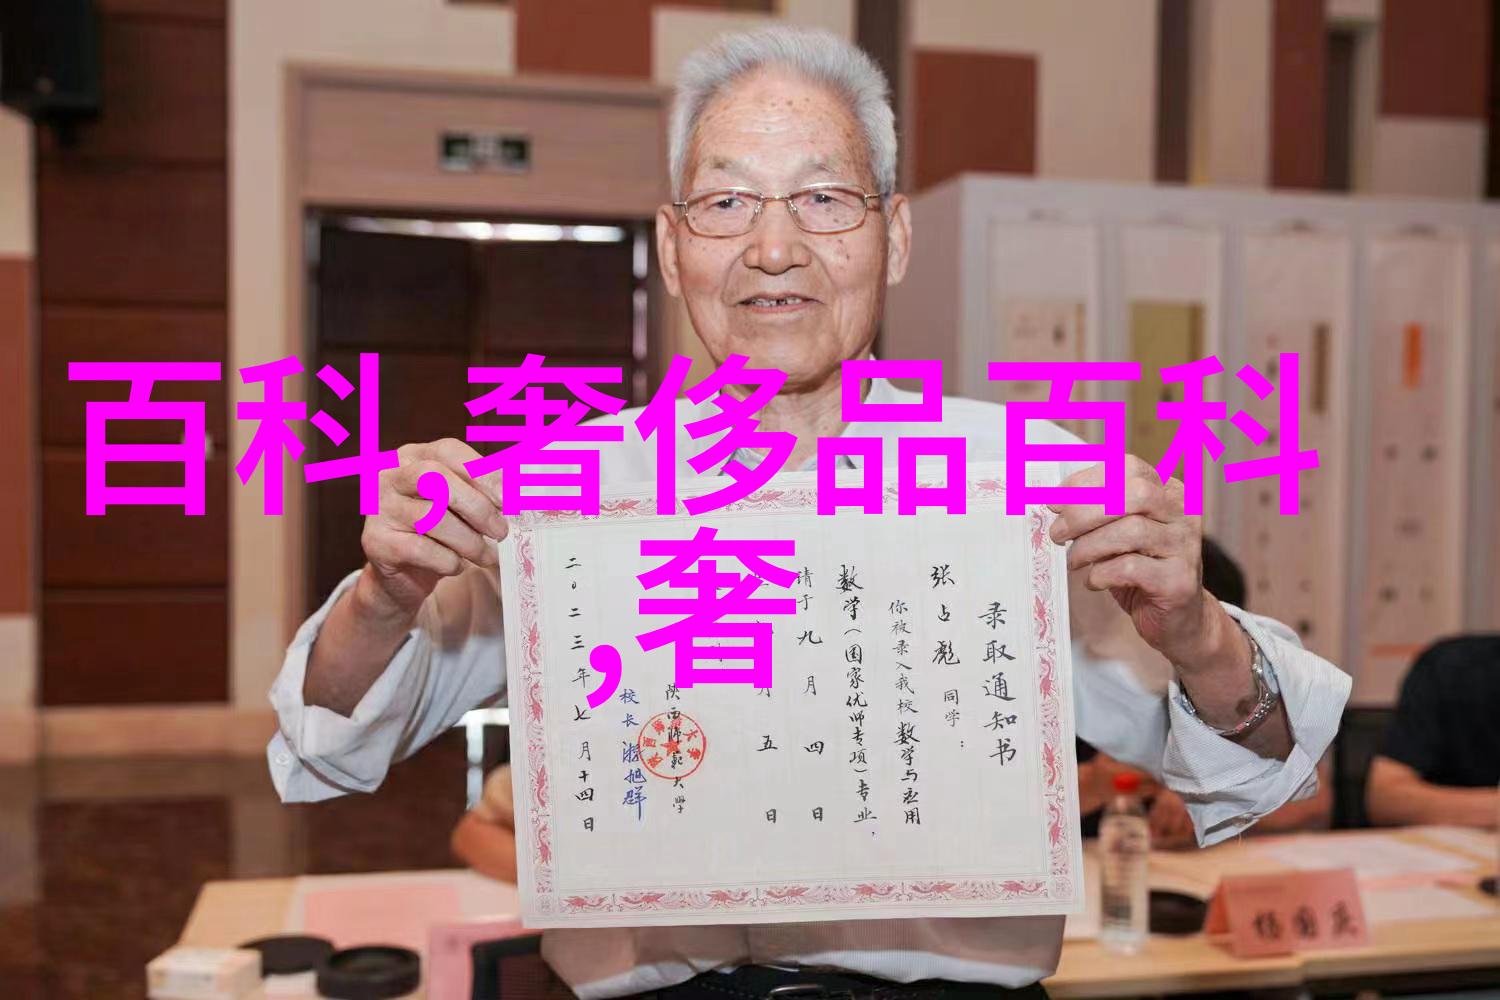 百科,奢侈品百科
,奢
录取通知书
张占彪 同学：
你被录入我校 数学与应用
数学（国家优师专项）专业，
请于九月四日
月五日
陕西师范大学
校长 游旭群
二〇二三年七月十四日
杨国庆